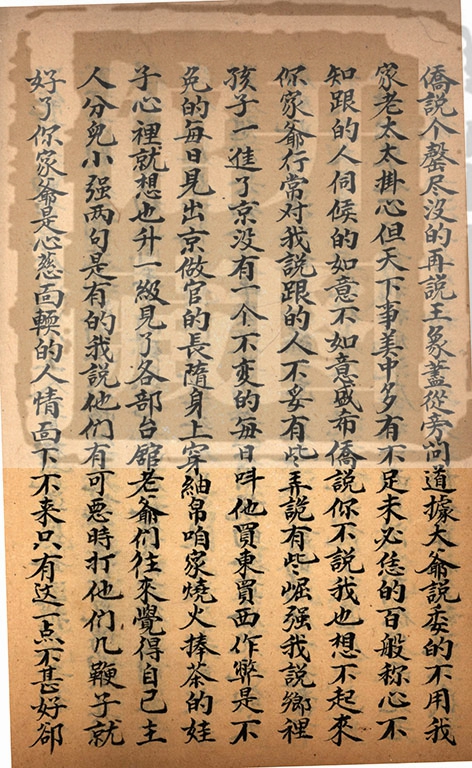 僑說个罄尽沒的再說王象藎從旁问道據大爺說委的不用我
家老太太掛心但天下事美中多有不足未必恁的百般称心不
知跟的人伺候的如意不如意盛希僑說你不說我也想不起来
你家爺行常对我說跟的人不妥有些弄說有些崛强我說鄉裡
孩子一進了京没有一个不变的每日呌他買東買西作弊是不
免的每日見出京做官的長隨身上穿紬帛咱家燒火捧茶的娃
子心裡就想也升一級見了各部台館老爺们往來覺得自己主
人分兒小强两句是有的我說他们有可惡時打他们几鞭子就
好了你家爺是心慈面輭的人情面下不来只有这一点不甚好卻